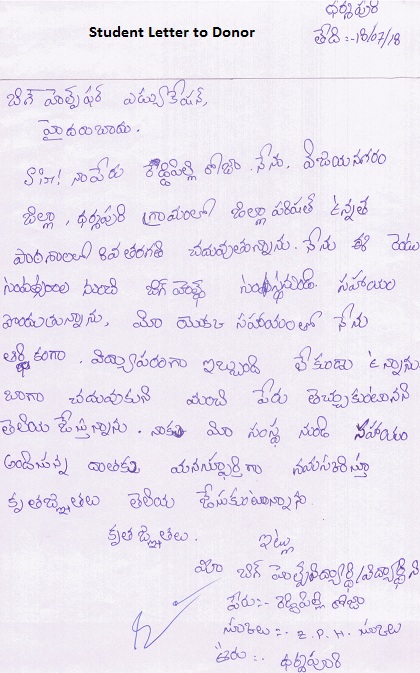 Student Letter to Donor
ధర్మపురి
తేది :- 18/07/18
బిగ్ హెల్ప్ ఫర్ ఎడ్యుకేషన్,
హైదరాబాదు.
నాపేరు రెడ్డిపల్లి రోజా. నేను, విజయనగరం
జిల్లా, ధర్మపురి గ్రామంలో జిల్లా పరిషత్ ఉన్నత
పాఠశాలలో 8వ తరగతి చదువుతున్నాను. నేను ఈ రెండు
సంవత్సరాల నుంచి బిగ్ హెల్ప్ సంస్థనుండి సహాయం
పొందుతున్నాను, మీ యొక్క సహాయంతో నేను
ఆర్థికంగా. విద్యాపరంగా ఇబ్బంది లేకుండా ఉన్నాను
బాగా చదువుకుని మంచి పేరు తెచ్చుకుంటానని
తెలియ జేస్తున్నాను. నాకు మీ సంస్థ నుండి సహాయం
అందిస్తున్న దాతకు మనస్ఫూర్తిగా నమస్కరిస్తూ
కృతజ్ఞతలు తెలియ జేసుకుంటున్నాను.
కృతజ్ఞతలు.
ఇట్లు
మీ బిగ్ హెల్ప్ విద్యార్థి/విద్యార్థిని
పేరు:- రెడ్డిపల్లి రోజా
స్కూలు :- Z. P. H. స్కూలు
ఊరు :- ధర్మపురి